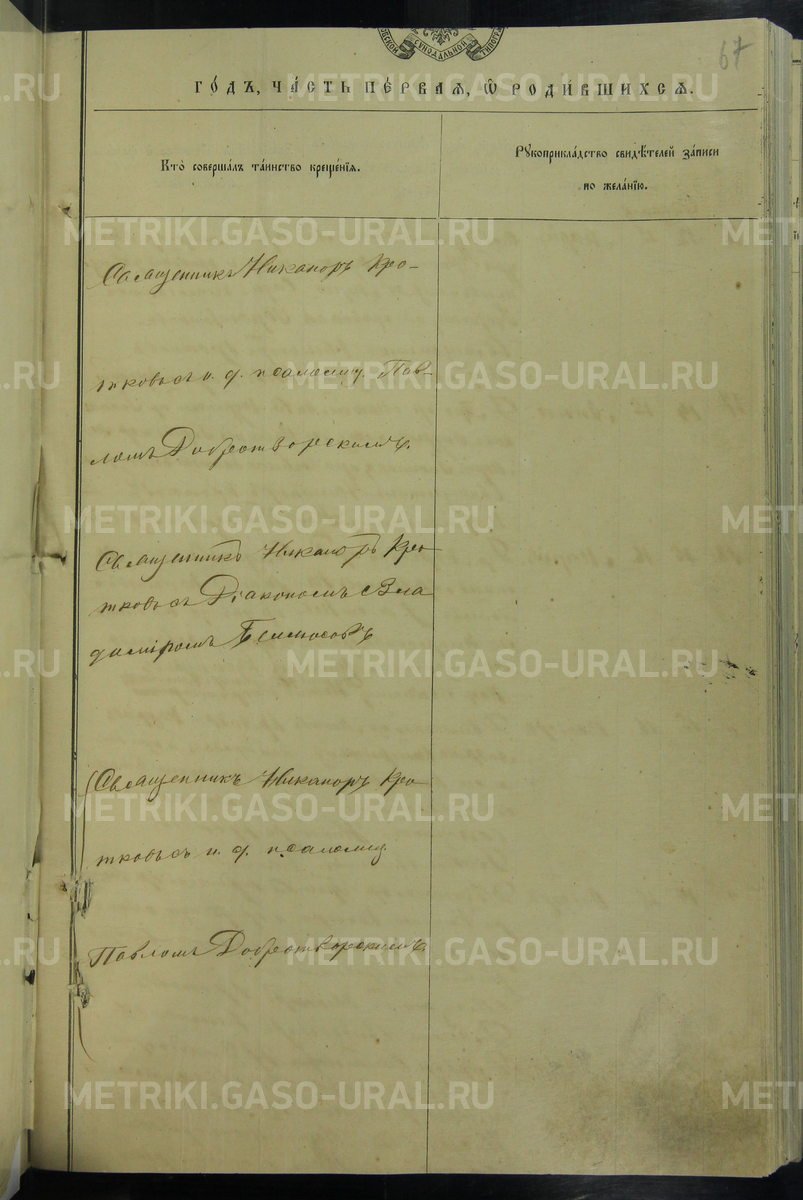 СѴНОДАЛЬНОЙ
ТИПОГР
67
ГО́ДЪ, ЧА́СТЬ ПЕ́РВАѦ, Ѽ РОДИ́ВШИХСѦ.
Кто̀ соверша́лъ та́инство креще́нїѧ.
Рꙋкоприкла́дство свидѣ́телей за́писи
по жела́нїю.
Священникъ Никаноръ Кро-
тковъ съ и. д. псаломщ. Пав-
ломъ Добротворскимъ.
Священникъ Никаноръ Кро
тковъ съ Діакономъ Вла
диміромъ Бѣлоносовъ
Священникъ Никаноръ Кро
тковъ съ и. д. псаломщ
Павломъ Добротворскимъ.
METRIKI.GASO-URAL.RU